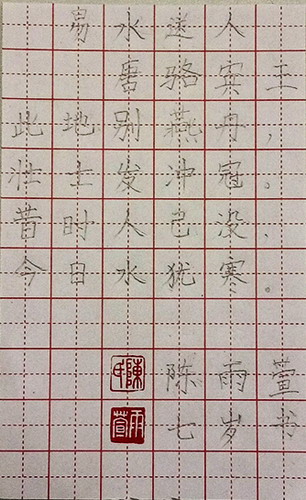 易水送人
唐骆宾王
此地别燕丹，
壮士发冲冠。
昔时人已没，
今日水犹寒。
陳氏
陈雨萱
雨萱
七岁书